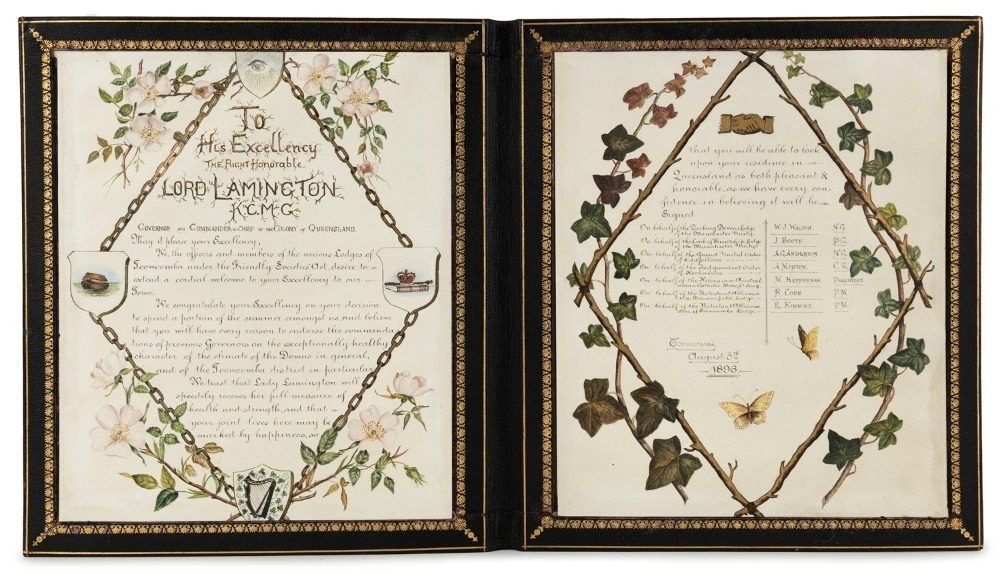 To
His Excellency
THE RIGHT HONORABLE
LORD LAMINGTON
K.C.M.G.
GOVERNOR AND COMMANDER IN CHIEF OF THE COLONY OF QUEENSLAND.
May it please your Excellency,
We, the officers and members of the various Lodges of
Toowoomba under the Friendly Societies' Act, desire to
extend a cordial welcome to your Excellency to our
Town.
We congratulate your Excellency on your decision
to spend a portion of the summer amongst us and believe
that you will have every reason to endorse the commenda-
tions of previous Governors on the exceptionally healthy
character of the climate of the Downs in general,
and of the Toowoomba district in particular.
We trust that Lady Lamington will
speedily recover her full measure of
health and strength, and that
your joint lives here may be
marked by happiness, so
that you will be able to look
upon your residence in
Queensland as both pleasant &
honorable, as we have every con-
fidence in believing it will be.
Signed
On behalf of the Darling Downs Lodge W. J. N.G.
of the Manchester Unity.
On behalf of the Lodge J. Booth
of the Manchester Unity.
On behalf of the Grand United Order A. G. Anderson N.G.
of Oddfellows.
On behalf of the Independent Order A. Horton C.R.
of
On behalf of the Hibernian Austral- M. Heffernan President
asian Catholic Benefit Socy.
On behalf of the Protestant Alliance R. Code P.M.
Lodge
On behalf of the Protestant Alliance E. P.M.
Lodge
Toowoomba,
August 5th
1896